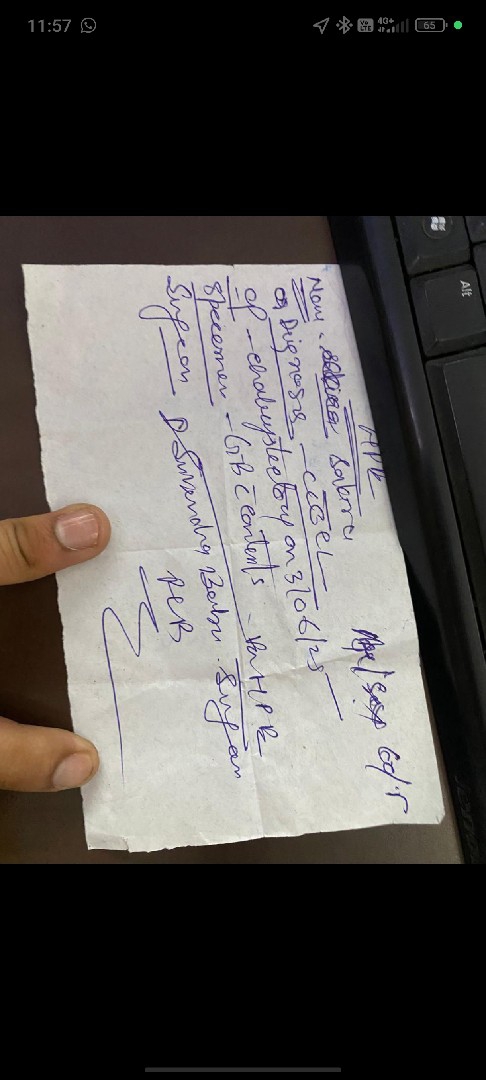 11:57
4G+
65
Alt
HPE
Name - Sabira
Age/Sex 60/F
Diagnosis - CBCL
OP - cholecystectomy on 3/06/25
Specimen - GB c contents - for HPE
Surgeon Dr Surendra Babu . Surgeon